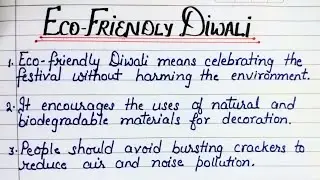 ECO-FRIENDLY DIWALI
1. Eco-friendly Diwali means celebrating the
festival without harming the environment.
2. It encourages the uses of natural and
biodegradable materials for decoration.
3. People should avoid bursting crackers to
reduce air and noise pollution.